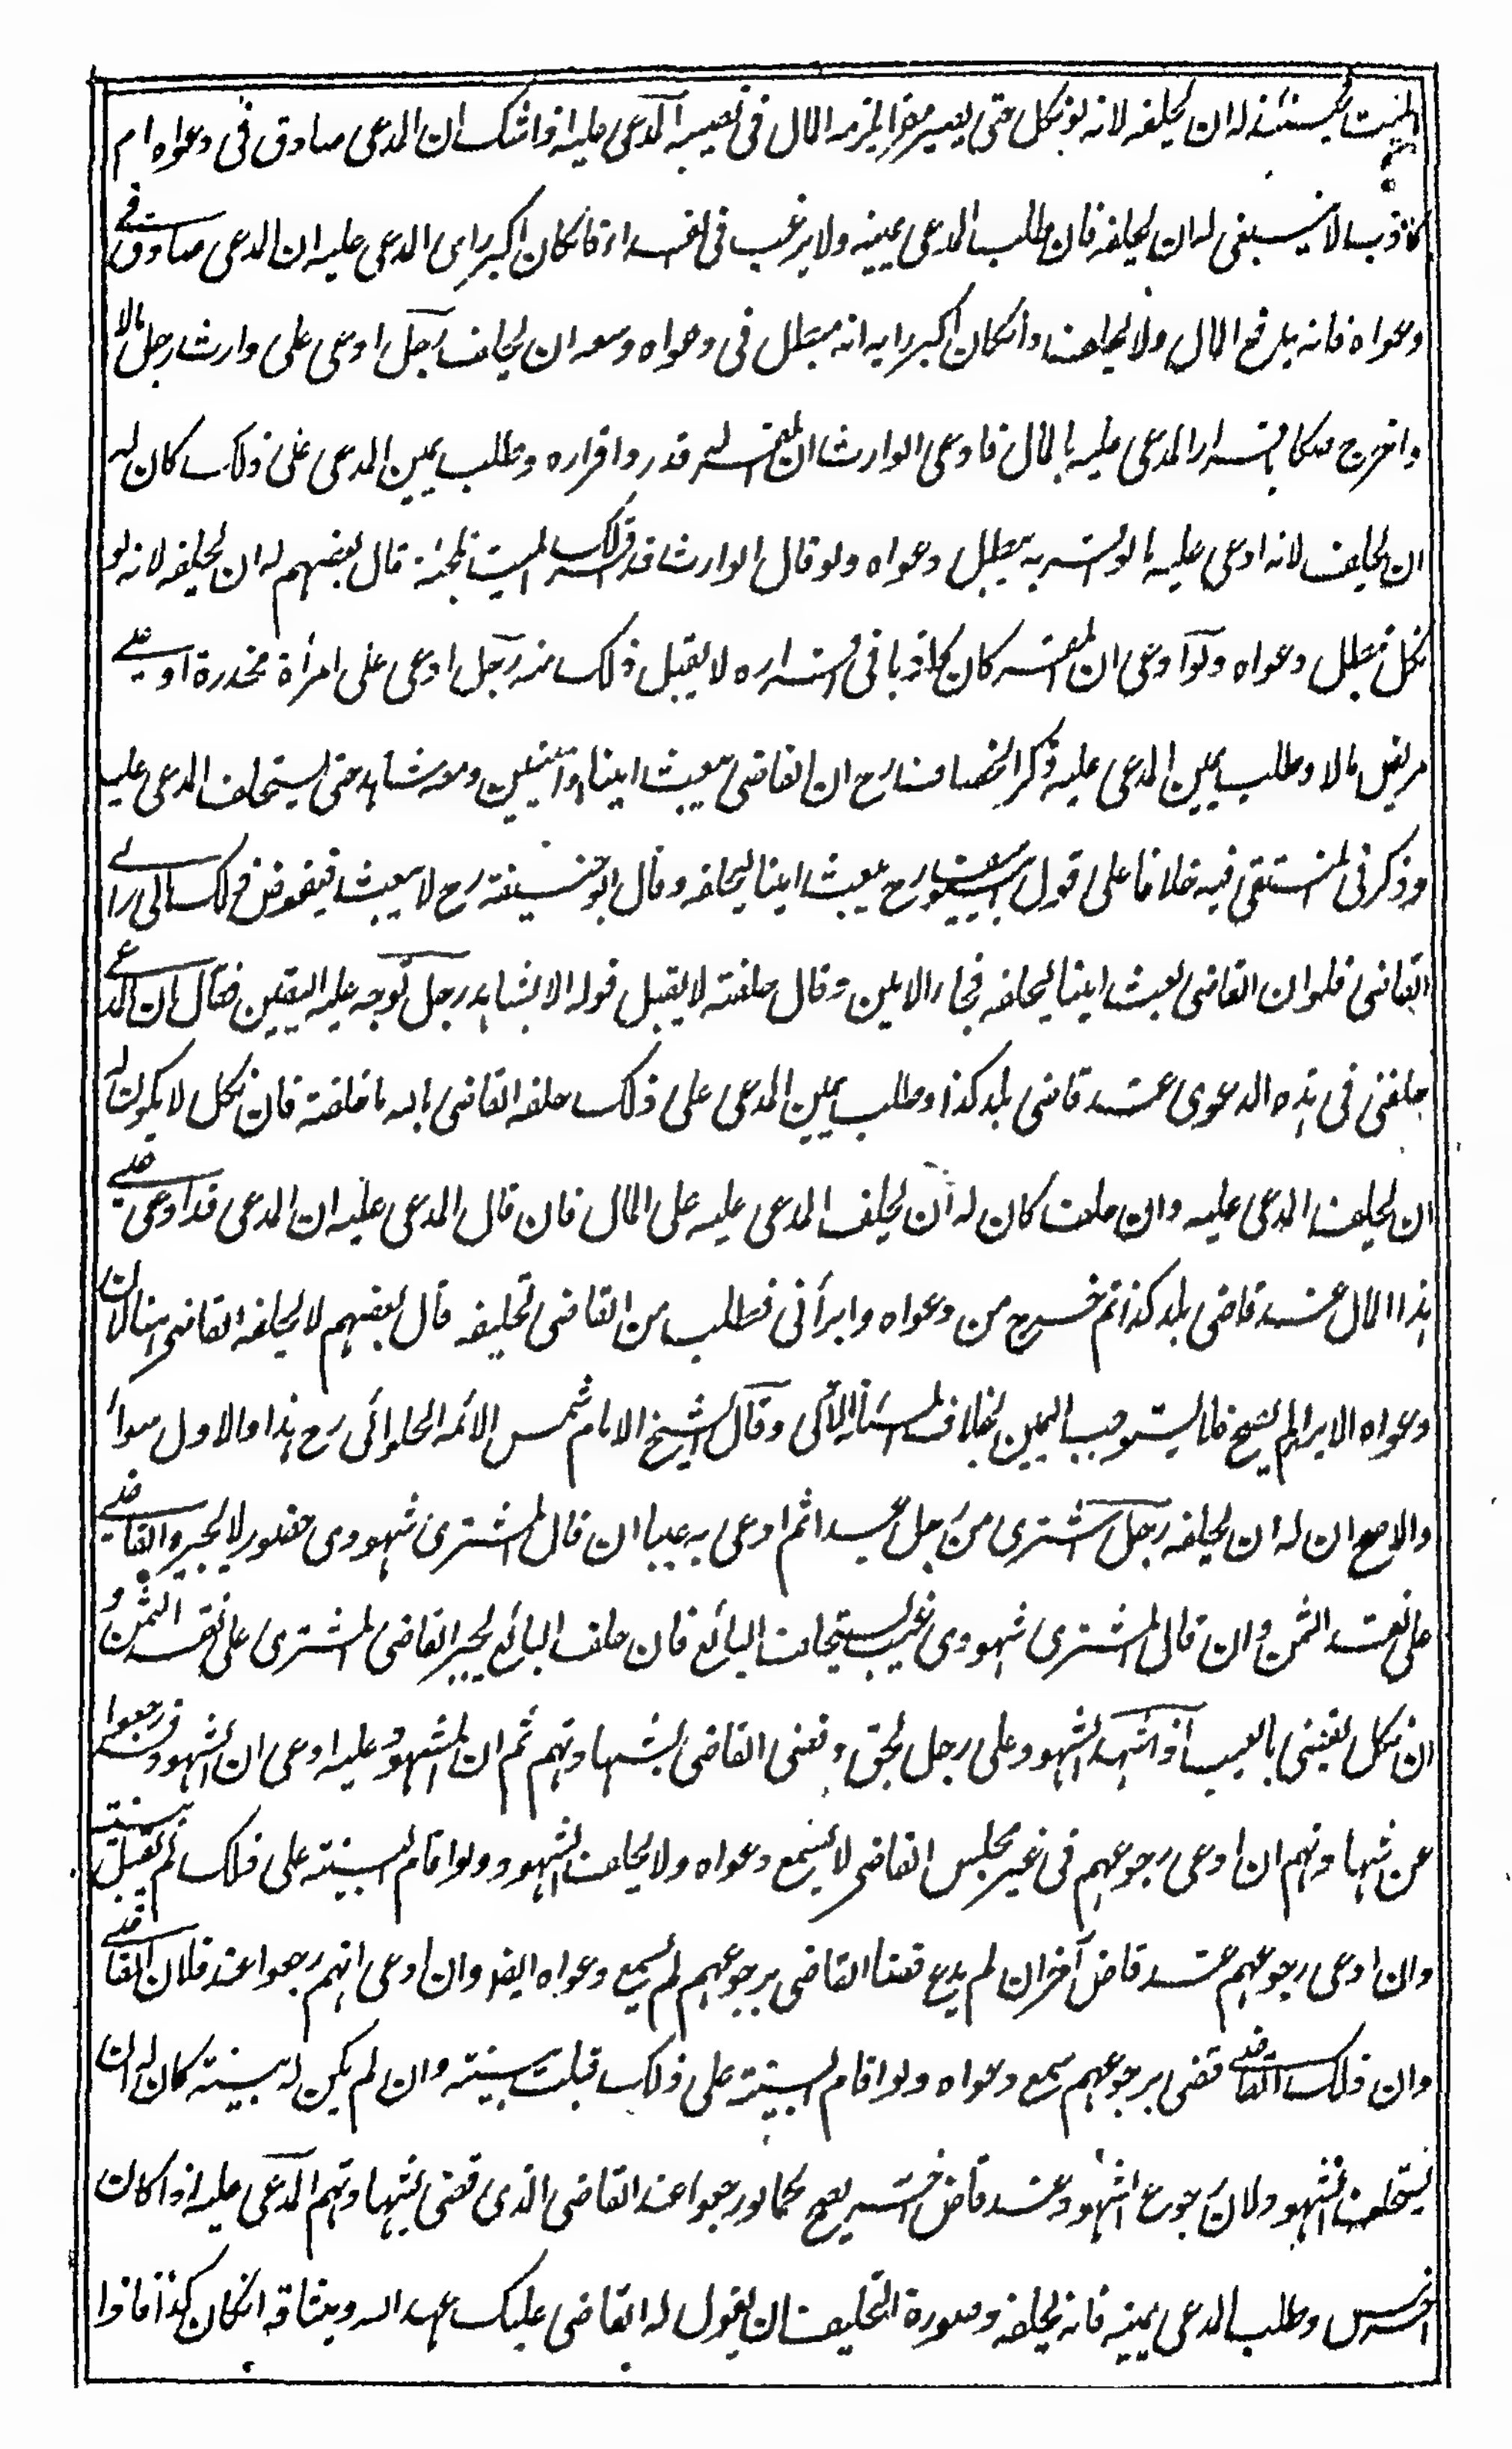 الميت فحينئذ له ان يحلفه لانه لو نكل حتى يصير مقرا لزمه المال فى نصيبه المدعى عليه اذا شك ان المدعى صادق فى دعواه ام
كاذب لا ينبغى له ان يحلف فان طلب المدعى يمينه ولا يرغب فى الفداء فان كان اكبر راى المدعى عليه ان المدعى صادق فى
دعواه فانه يدفع المال ولا يحلف وان كان اكبر رايه انه مبطل فى دعواه وسعه ان يحلف رجل ادعى على وارث رجل مالا
واخرج صكا باقرار المدعى عليه بالمال فادعى الوارث ان المقر له قد رد اقراره وطلب يمين المدعى على ذلك كان له
ان يحلف لانه ادعى عليه ما لو اقر به يبطل دعواه ولو قال الوارث قد اقر لك الميت تلجئة قال بعضهم له ان يحلفه لانه لو
نكل تبطل دعواه ولو ادعى ان المقر كان كاذبا فى اقراره لا يقبل ذلك منه رجل ادعى على امرأة مخدرة او على
مريض مالا وطلب يمين المدعى عليه ذكر الخصاف رح ان القاضى يبعث امينا او امينين ومعه شاهد حتى يستحلف المدعى عليه
وذكر فى المنتقى فيه خلافا على قول ابى يوسف رح يبعث امينا ليحلفه وقال ابو حنيفة رح لا يبعث فيفوض ذلك الى راى
القاضى فلو ان القاضى بعث امينا ليحلفه فجاء الامين وقال حلفته لا يقبل قوله الا بشاهد رجل توجه عليه اليمين فقال ان المدعى
حلفنى فى هذه الدعوى عند قاضى بلد كذا وطلب يمين المدعى على ذلك حلفه القاضى بالله ما حلفته فان نكل لا يكون له
ان يحلف المدعى عليه وان حلف كان له ان يحلف المدعى عليه على المال فان قال المدعى عليه ان المدعى قد ادعى على
هذا المال عند قاضى بلد كذا ثم خرج من دعواه وابرأنى فطلب من القاضى تحليفه قال بعضهم لا يحلفه القاضى هنا لان
دعواه الابراء لم يصح فلا يستوجب اليمين بخلاف المسئالة الاولى وقال الشيخ الامام شمس الائمة الحلوائى رح هذا والاول سواء
والاصح ان له ان يحلفه رجل اشترى من رجل عبدا ثم ادعى به عيبا ان قال المشترى شهودى حضور لا يجبره القاضى
على نقد الثمن وان قال المشترى شهودى غيب يستحلف البائع فان حلف البائع يجبر القاضى المشترى على نقد الثمن و
ان نكل يقضى بالعيب اذا شهد الشهود على رجل بحق وقضى القاضى بشهادتهم ثم ان المشهود عليه ادعى ان الشهود رجعوا
عن شهادتهم ان ادعى رجوعهم فى غير مجلس القاضى لا يسمع دعواه ولا يحلف الشهود ولو اقام البينة على ذلك لم تقبل بينته
وان ادعى رجوعهم عند قاض آخر ان لم يدع قضاء القاضى برجوعهم لم يسمع دعواه ايضا وان ادعى انهم رجعوا عند فلان القاضى
وان ذلك القاضى قضى برجوعهم سمع دعواه ولو اقام البينة على ذلك قبلت بينته وان لم يكن له بينة كان له ان
يستحلف الشهود لان رجوع الشهود عند قاض آخر يصح كما لو رجعوا عند القاضى الذى قضى بشهادتهم المدعى عليه اذا كان
اخرس وطلب المدعى يمينه فانه يحلفه وصورة التحليف ان يقول له القاضى عليك عهد الله وميثاقه ان كان كذا فاذا